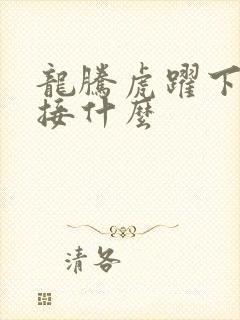 龍騰虎躍下
接什麼
清各